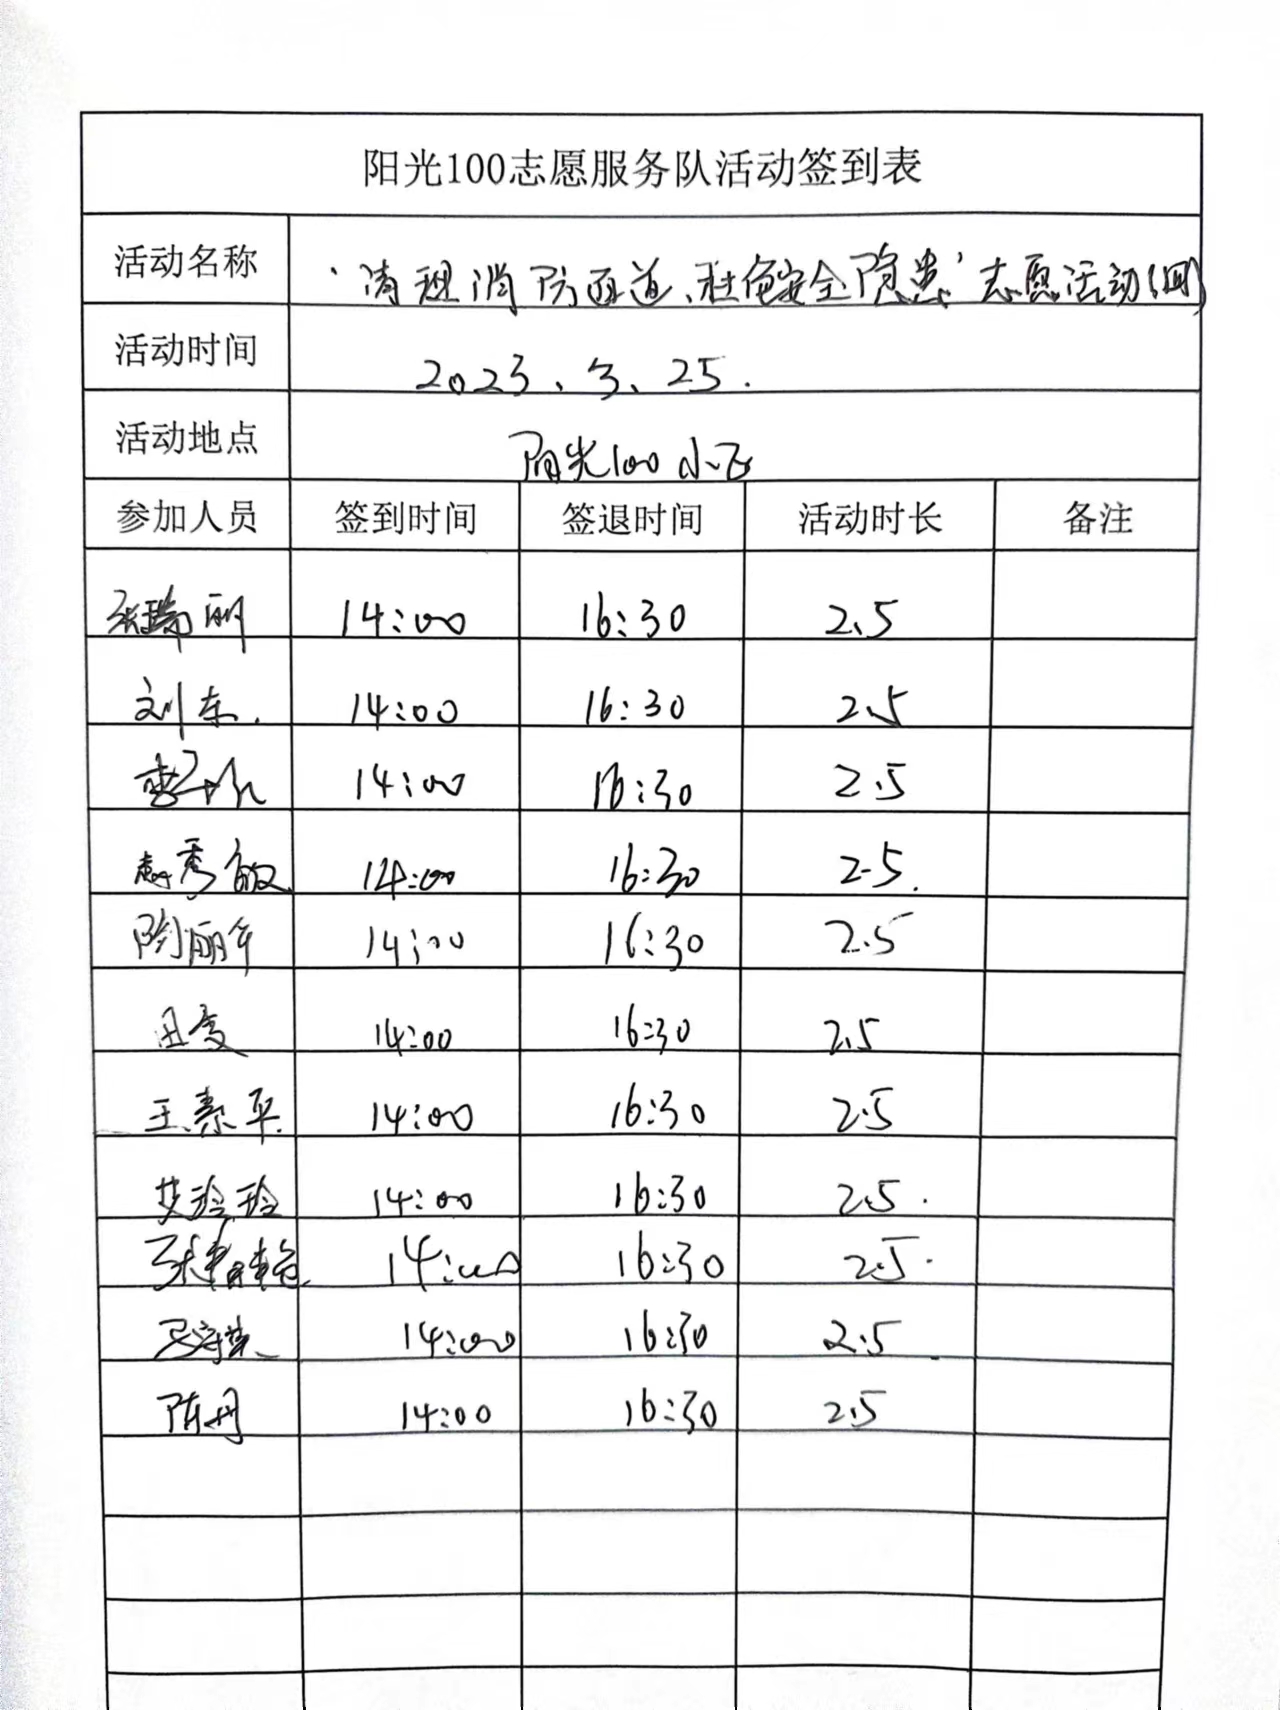 阳光100志愿服务队活动签到表
活动名称 “清理消防通道、杜绝安全隐患”志愿活动(四)
活动时间 2023、3、25.
活动地点 阳光100小区
参加人员 签到时间 签退时间 活动时长 备注
张瑞丽 14:00 16:30 2.5
刘东 14:00 16:30 2.5
14:00 16:30 2.5
秀敏 14:00 16:30 2.5
陶丽年 14:00 16:30 2.5
田 14:00 16:30 2.5
王素平 14:00 16:30 2.5
艾玲玲 14:00 16:30 2.5
张春艳 14:00 16:30 2.5
14:00 16:30 2.5
陈丹 14:00 16:30 2.5